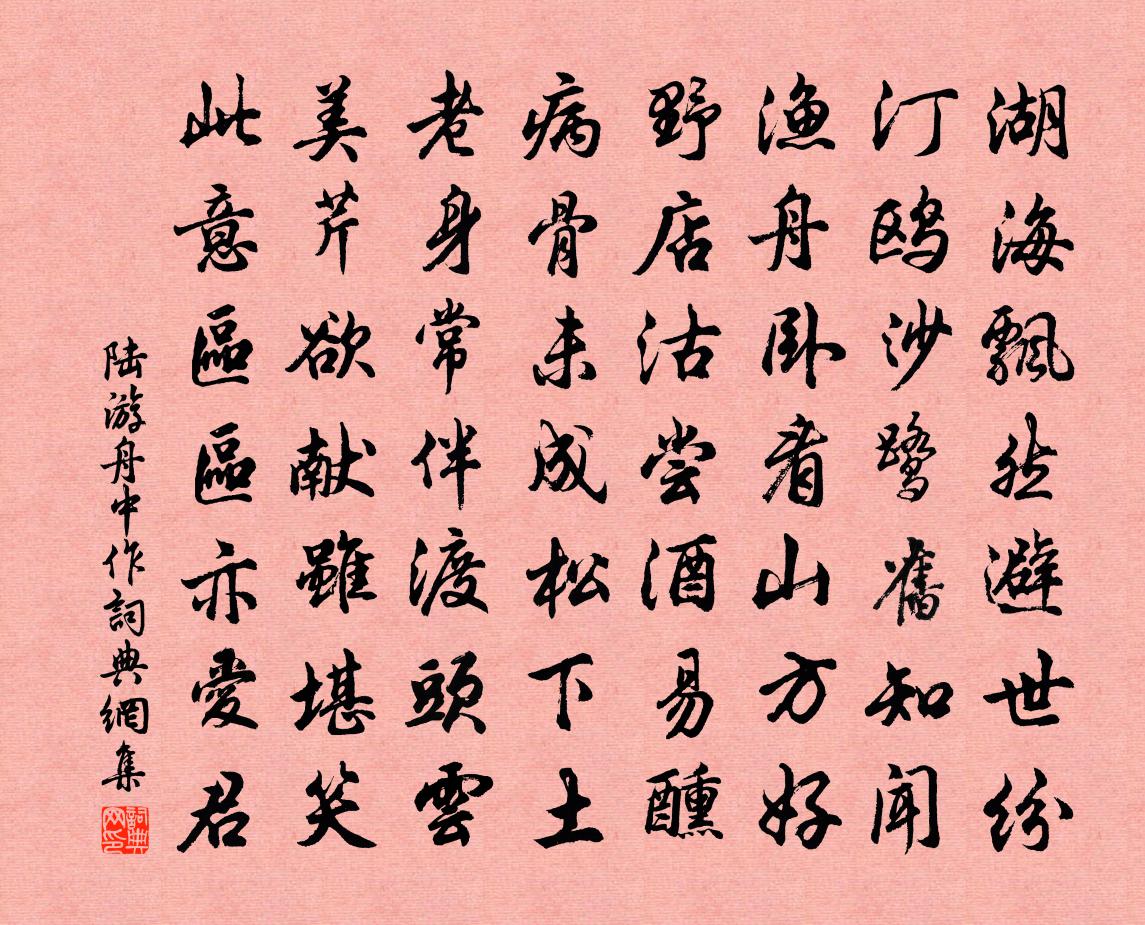 湖海飄然避世紛
汀鸥沙鹭舊知闻
渔舟卧看山方好
野店沽尝酒易醺
病骨未成松下土
老身常伴渡頭雲
美芹欲献雖堪笑
此意區區亦愛君
陆游舟中作詞典網集
詞典网印